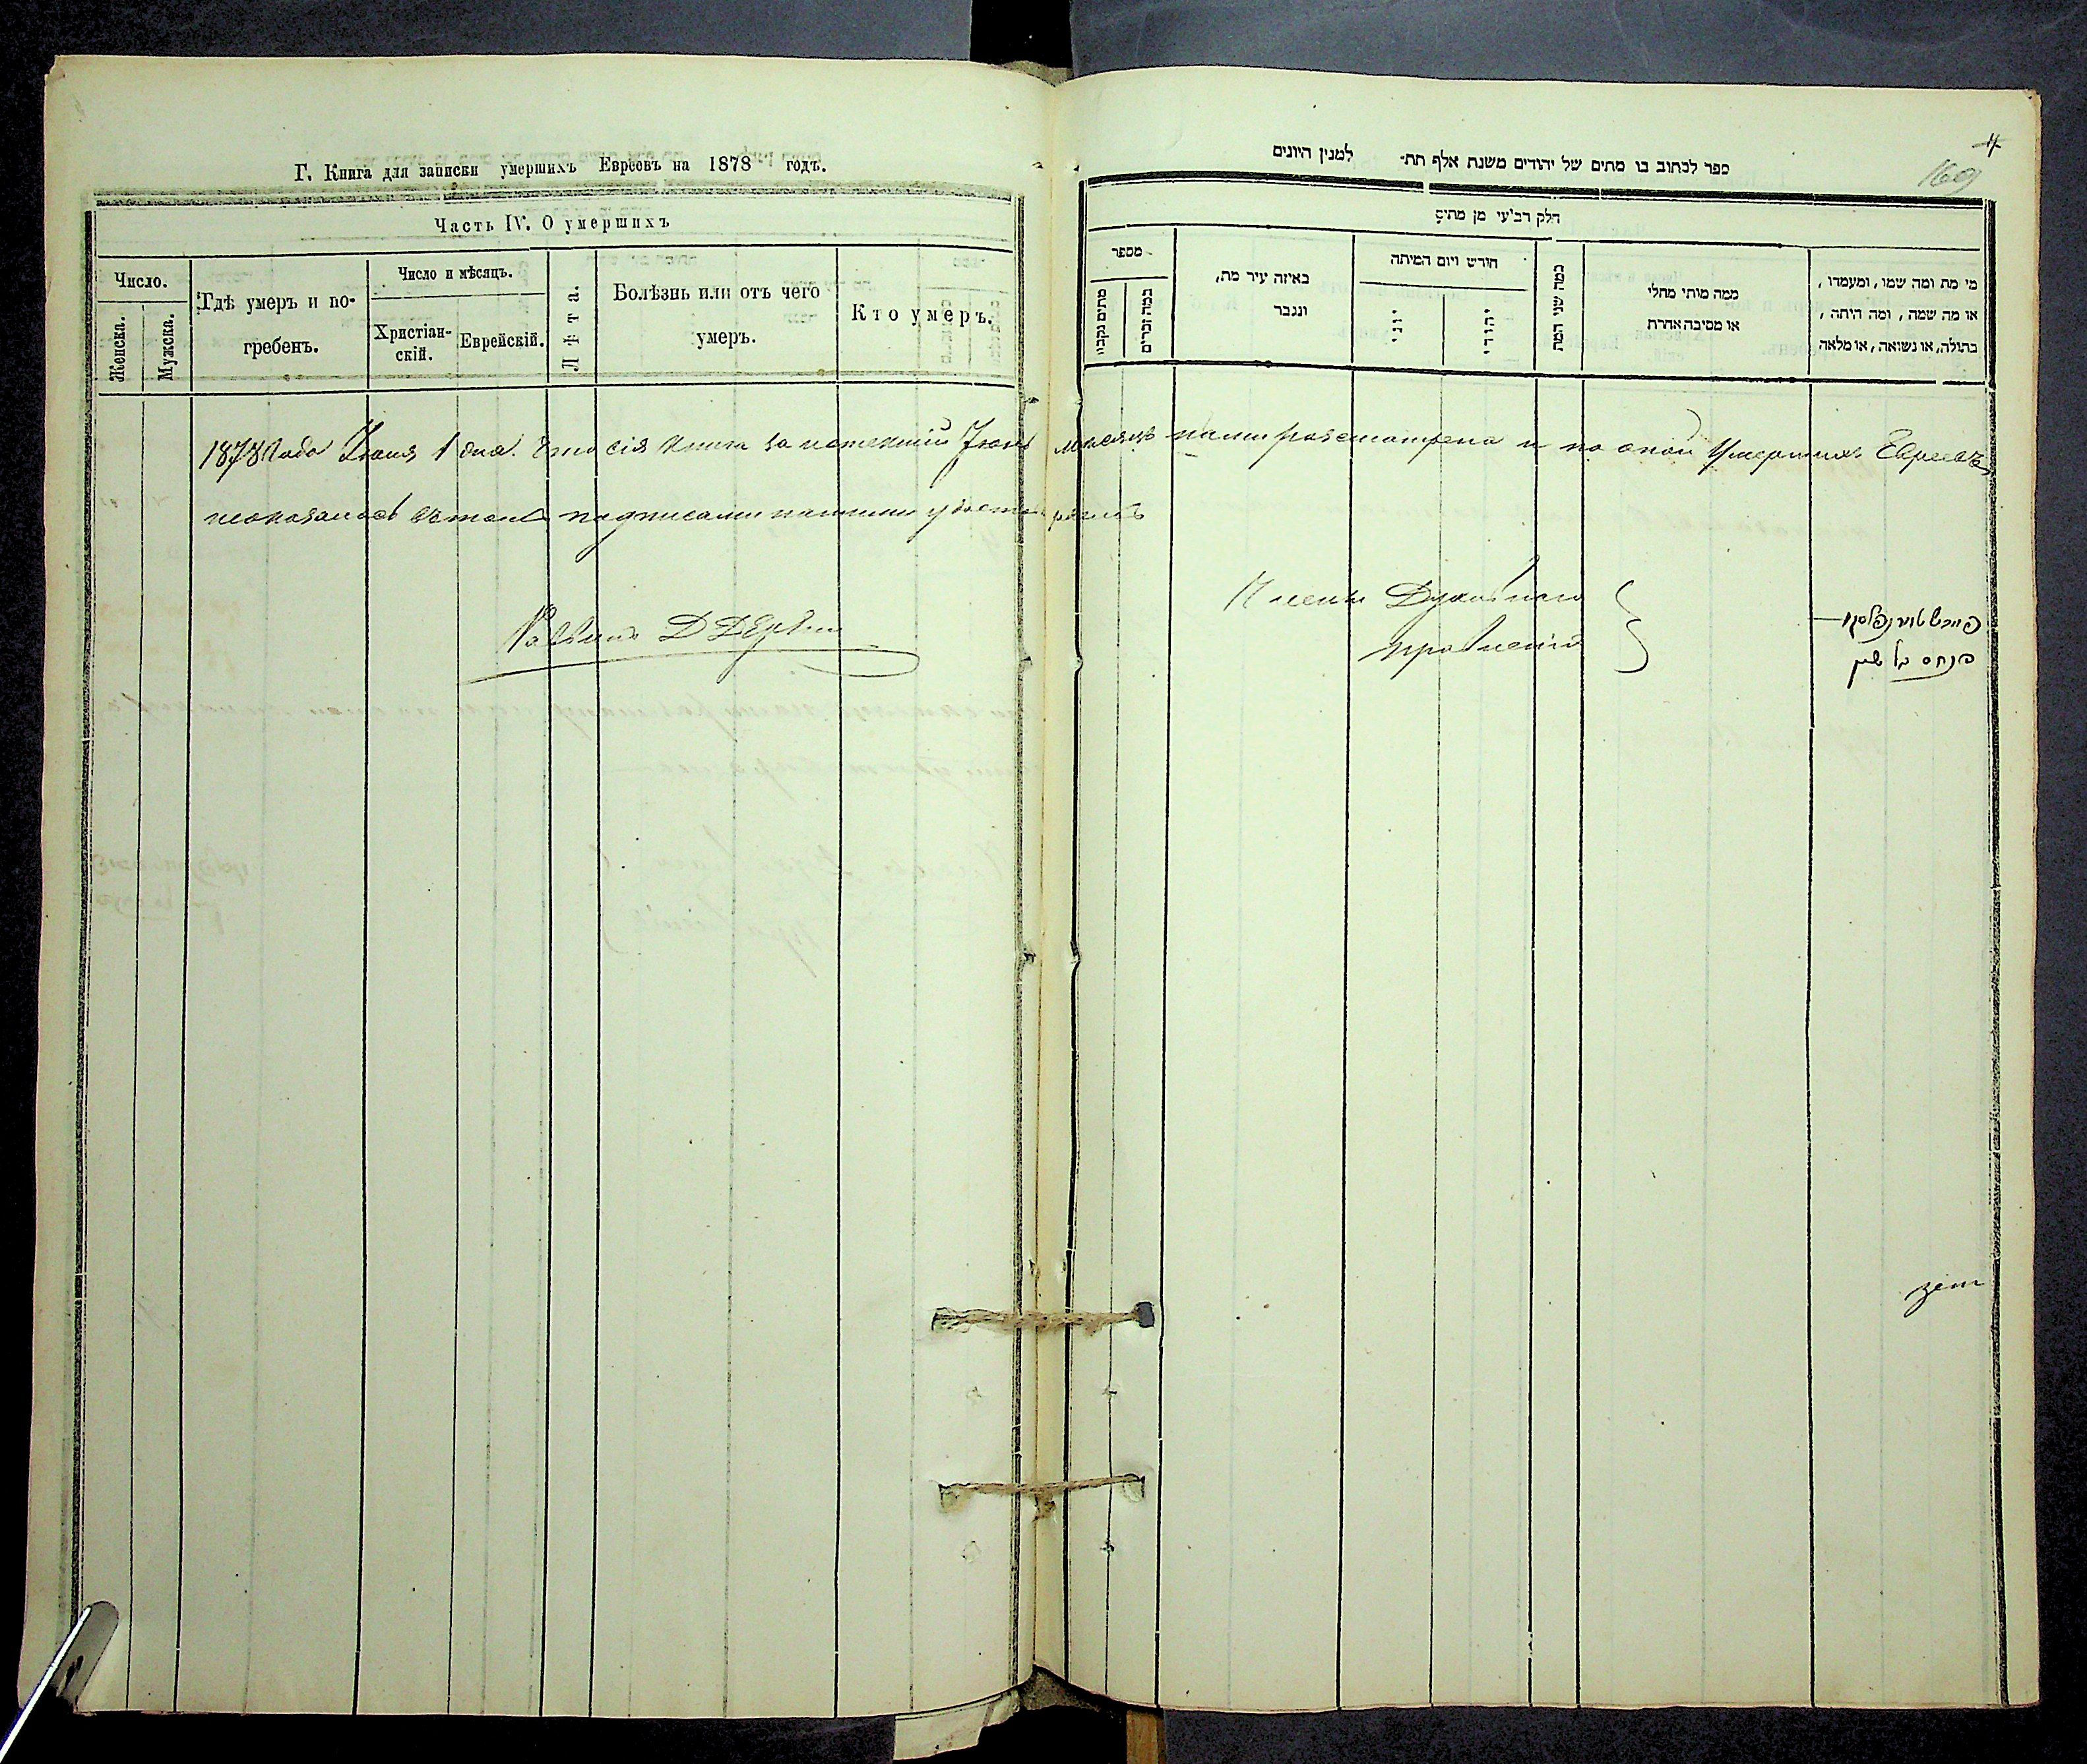 Г. Книга для записки умершихъ Евреевъ на 1878 годъ.
Часть IV. О умершихъ
Число.
Женска.
Мужска.
Гдѣ умеръ и по-
гребенъ.
Число и мѣсяцъ.
Христіан-
скій.
Еврейскій.
Лѣта.
Болѣзнь или отъ чего
умеръ.
Кто умеръ.
4
169
ספר לכתוב בו מתים של יהודים משנת אלף תת־ למנין היונים
חלק רביעי מן מתים
מי מת ומה שמו, ומעמדו,
או מה שמה, ומה היתה,
בתולה, או נשואה, או מלאה
ממה מותי מחלי
או מסיבה אחרת
כמה שני המת
חודש ויום המיתה
יהודי
יוני
באיזה עיר מת,
ונגבר
מספר
כמה זכרים
מתים נקביו
1878 Года Іюня 1 дня. Что сія книга за истекшій Іюнь мѣсяцъ нами разсмотрена и по оной умершихъ Евреевъ
неоказалось въ томъ подписами нашими удостоверяемъ
Раввинъ Д
Члены Духовнаго
правленія
פנחס